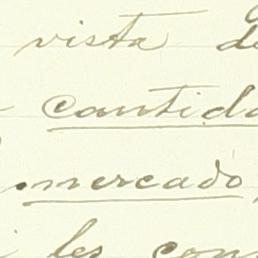 vista de
cantida
mercado,
les con